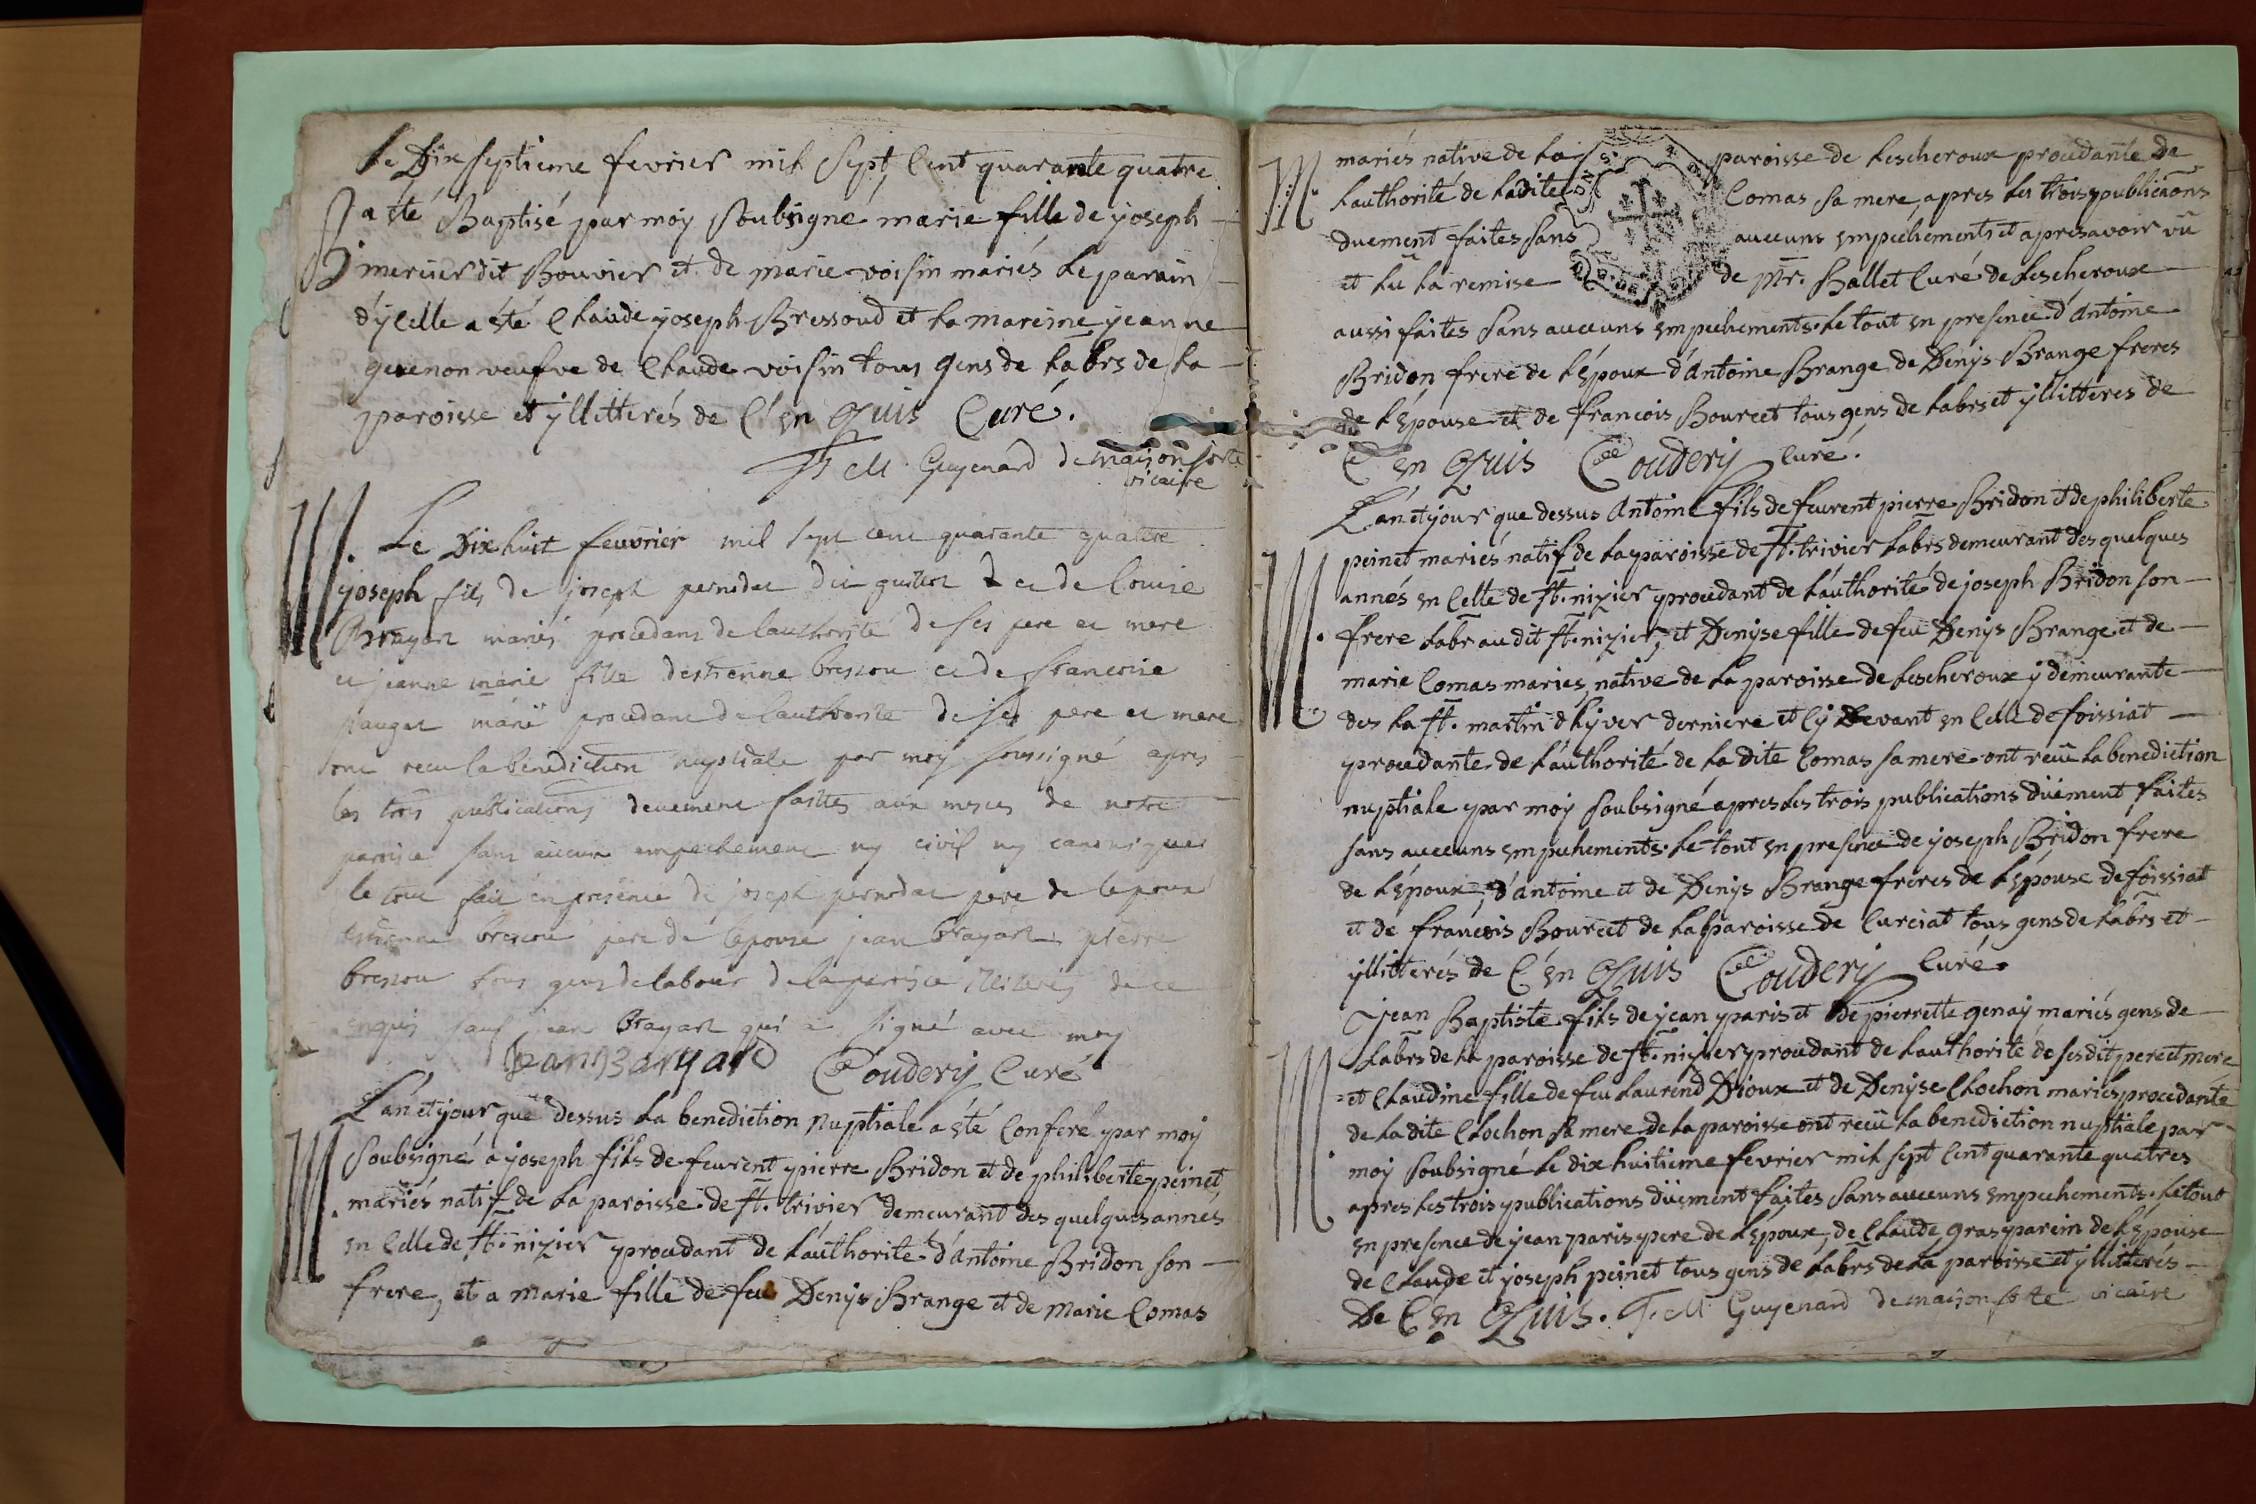 Le Dix septieme fevrier mil Sept Cent quarante quatre
a été Baptisé par moy Soubsigné marie fille de joseph
B mercier dit Bouvier et de marie voisin mariés Le parain
d'ycelle a été Claude joseph Bressoud et La mareine jeanne
gerenon veufve de Claude voisin tous gens de Labrs de La
paroisse et yllitterés de C'en Quis Curé.
F M Guyenard demaisonforte
vicaire
M. Le Dixhuit feuvrier mil sept cent quarante quattre
joseph fils de joseph pernodat dit guillot et de Louise
Brayart mariés procedans de lauthorité de ses pere et mere
et jeanne marie fille destienne bressou et de francoise
mauget marié procedant de lauthorité de ses pere et mere
ont receu la bénédiction nuptiale par moy soussigné apres
les trois publications deuement faittes aux messes de notre
paroisse sans aucun empechement ny civil ny canonique
le tout fait en presence de joseph pernodat pere de lepoux
estienne bressou pere de lepouse jean brayart pierre
bressou tous gens de labour de la paroisse illiterés de ce
enquis sauf jean brayart qui a signé avec moy
Jean Baryard Coudery Curé
M. L'an et jour que dessus La benediction Nuptiale a été Conferé par moy
Soubsigné a joseph fils de feurent pierre Bridon et de philiberte peinet
mariés natif de La paroisse de st. trivier demeurant des quelques annes
en Celle de st. nizier procedant de L'authorité d'Antoine Bridon son
frere, et a marie fille de feu Denys Brange et de Marie Comas
M. mariés native de La paroisse de Lescheroux procedante de
L'authorité de Ladite Comas sa mere, apres Les trois publicaons
duement faites sans aucuns empechements et apres avoir vû
et Lû La remise de Mr. Ballet Curé de Lescheroux
aussi faites sans aucuns empechements. Le tout en presence d'Antoine
Bridon frere de L'Epoux d'Antoine Brange de Denys Brange freres
de L'Epouse et de francois Bourcet tous gens de Labrs et yllitteres de
C' en Quis Coudery Curé.
L'an et jour que dessus Antoine fils de feurent pierre Bridon et de philiberte
M. peinet mariés natif de La paroisse de st. trivier Labrs demeurant des quelques
annés en Celle de st. nizier procedant de L'authorité de joseph Bridon son
frere Labr au dit st. nizier, et Denyse fille de feu Denys Brange et de
marie Comas maries, native de La paroisse de Lescheroux y demeurante
des La st. martin d'hyver derniere et Cy Devant en Celle de foissiat
procedante de L'authorité de La dite Comas sa mere ont reçû La benediction
nuptiale par moy soubsigné apres Les trois publications düement faites
sans aucuns empechements. Le tout en presence de joseph Bridon frere
de L'Epoux, d'Antoine et de Denys Brange freres de L'Epouse de foissiat
et de francois Bourcet de La paroisse de Curciat tous gens de Labrs et
yllitterés de C'en Quis Coudery Curé.
jean Baptiste fils de jean paris et de pierrette genay mariés gens de
M. Labrs de La paroisse de st. nizier procedant de L'authorité de ses dit pere et mere
et Claudine fille de feu Laurend Dioux et de Denyse Clochon mariés procedante
de La dite Clochon sa mere de La paroisse ont reçû La benediction nuptiale par
moy soubsigné Le dix huitieme fevrier mil sept Cent quarante quatres
apres Les trois publications düement faites sans aucuns empechements. Le tout
en presence de jean paris pere de L'Epoux, de Claude gras parein de L'Epouse
de Claude et joseph peinet tous gens de Labrs de La paroisse et yllitterés
De C'en Quis. F. M Guyenard demaisonforte vicaire